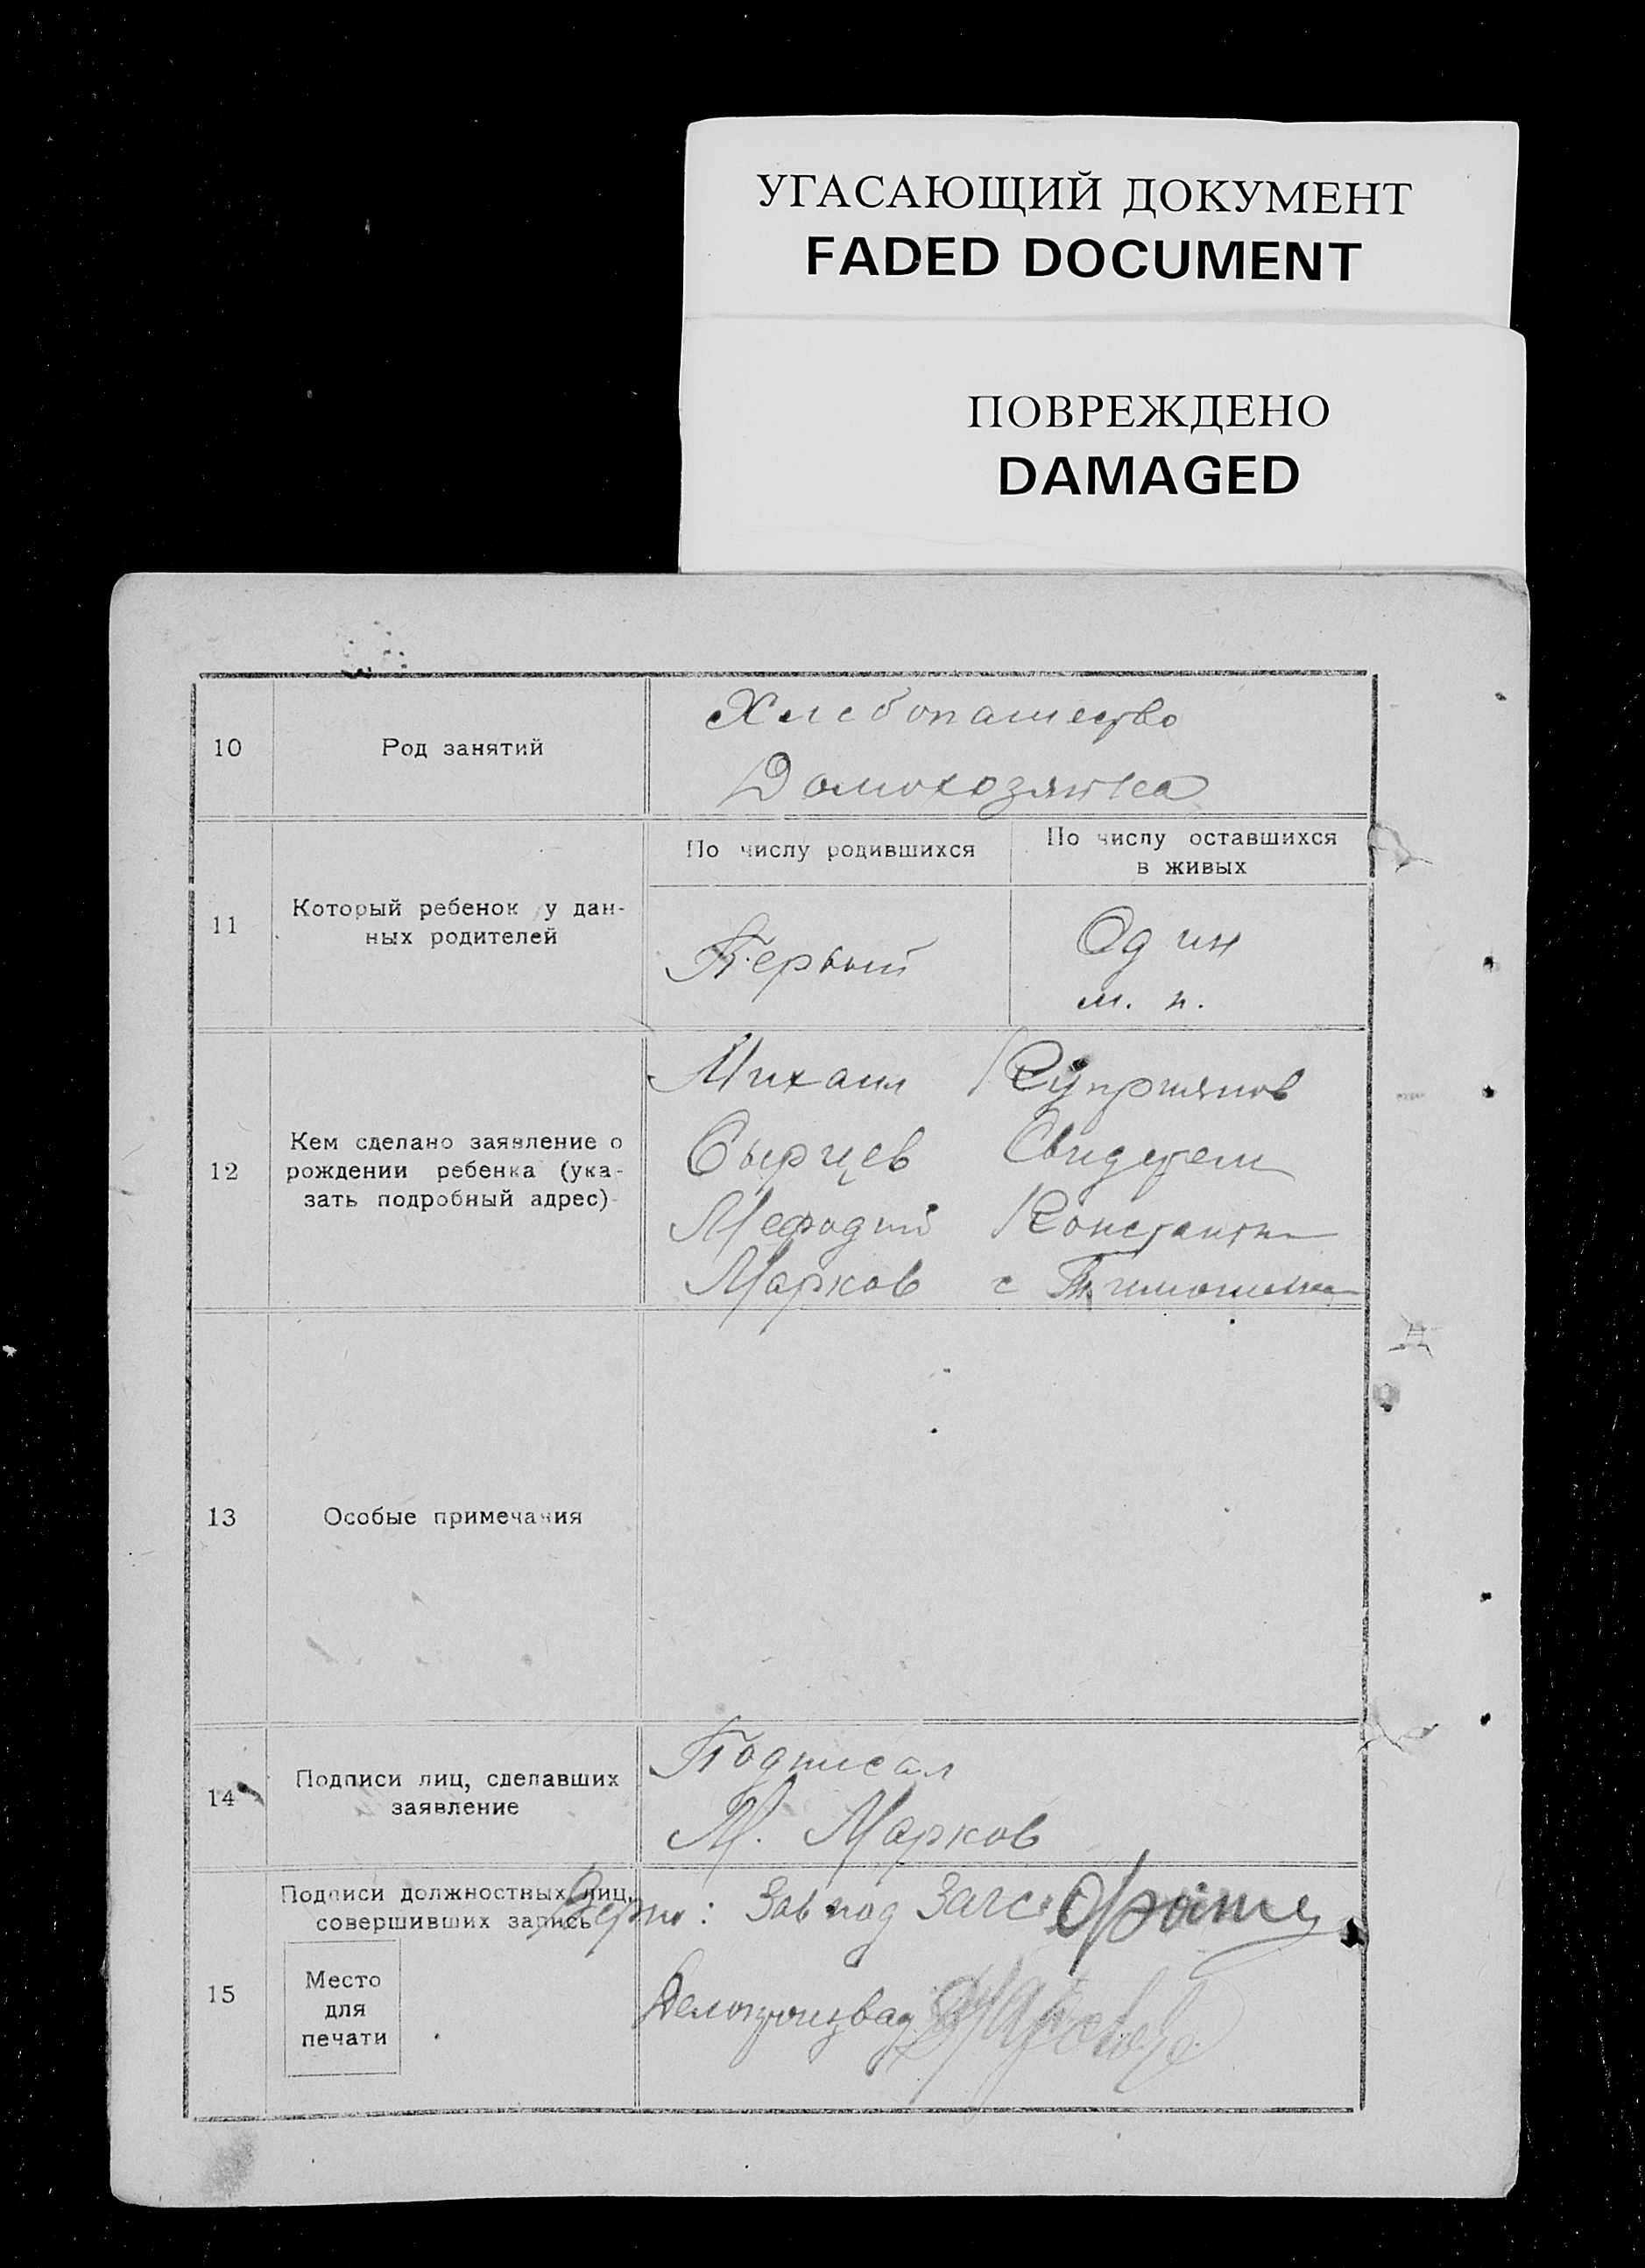 УГАСАЮЩИЙ ДОКУМЕНТ
FADED DOCUMENT
ПОВРЕЖДЕНО
DAMAGED
10
Род занятий
Хлебопашество
Домохозяйка
11
Который ребенок у дан-
ных родителей
По числу родившихся
Первый
По числу оставшихся
в живых
Один
м. п.
12
Кем сделано заявление о
рождении ребенка (ука-
зать подробный адрес)
Михаил Куприянов
Сырцев Свидетели
Мефодий Константин
Марков с Тимошино
13
Особые примечания
14
Подписи лиц, сделавших
заявление
Подписал
М. Марков
15
Подписи должностных лиц,
совершивших запись
Место
для
печати
Верно: Зав под Загс
Делопроизвод